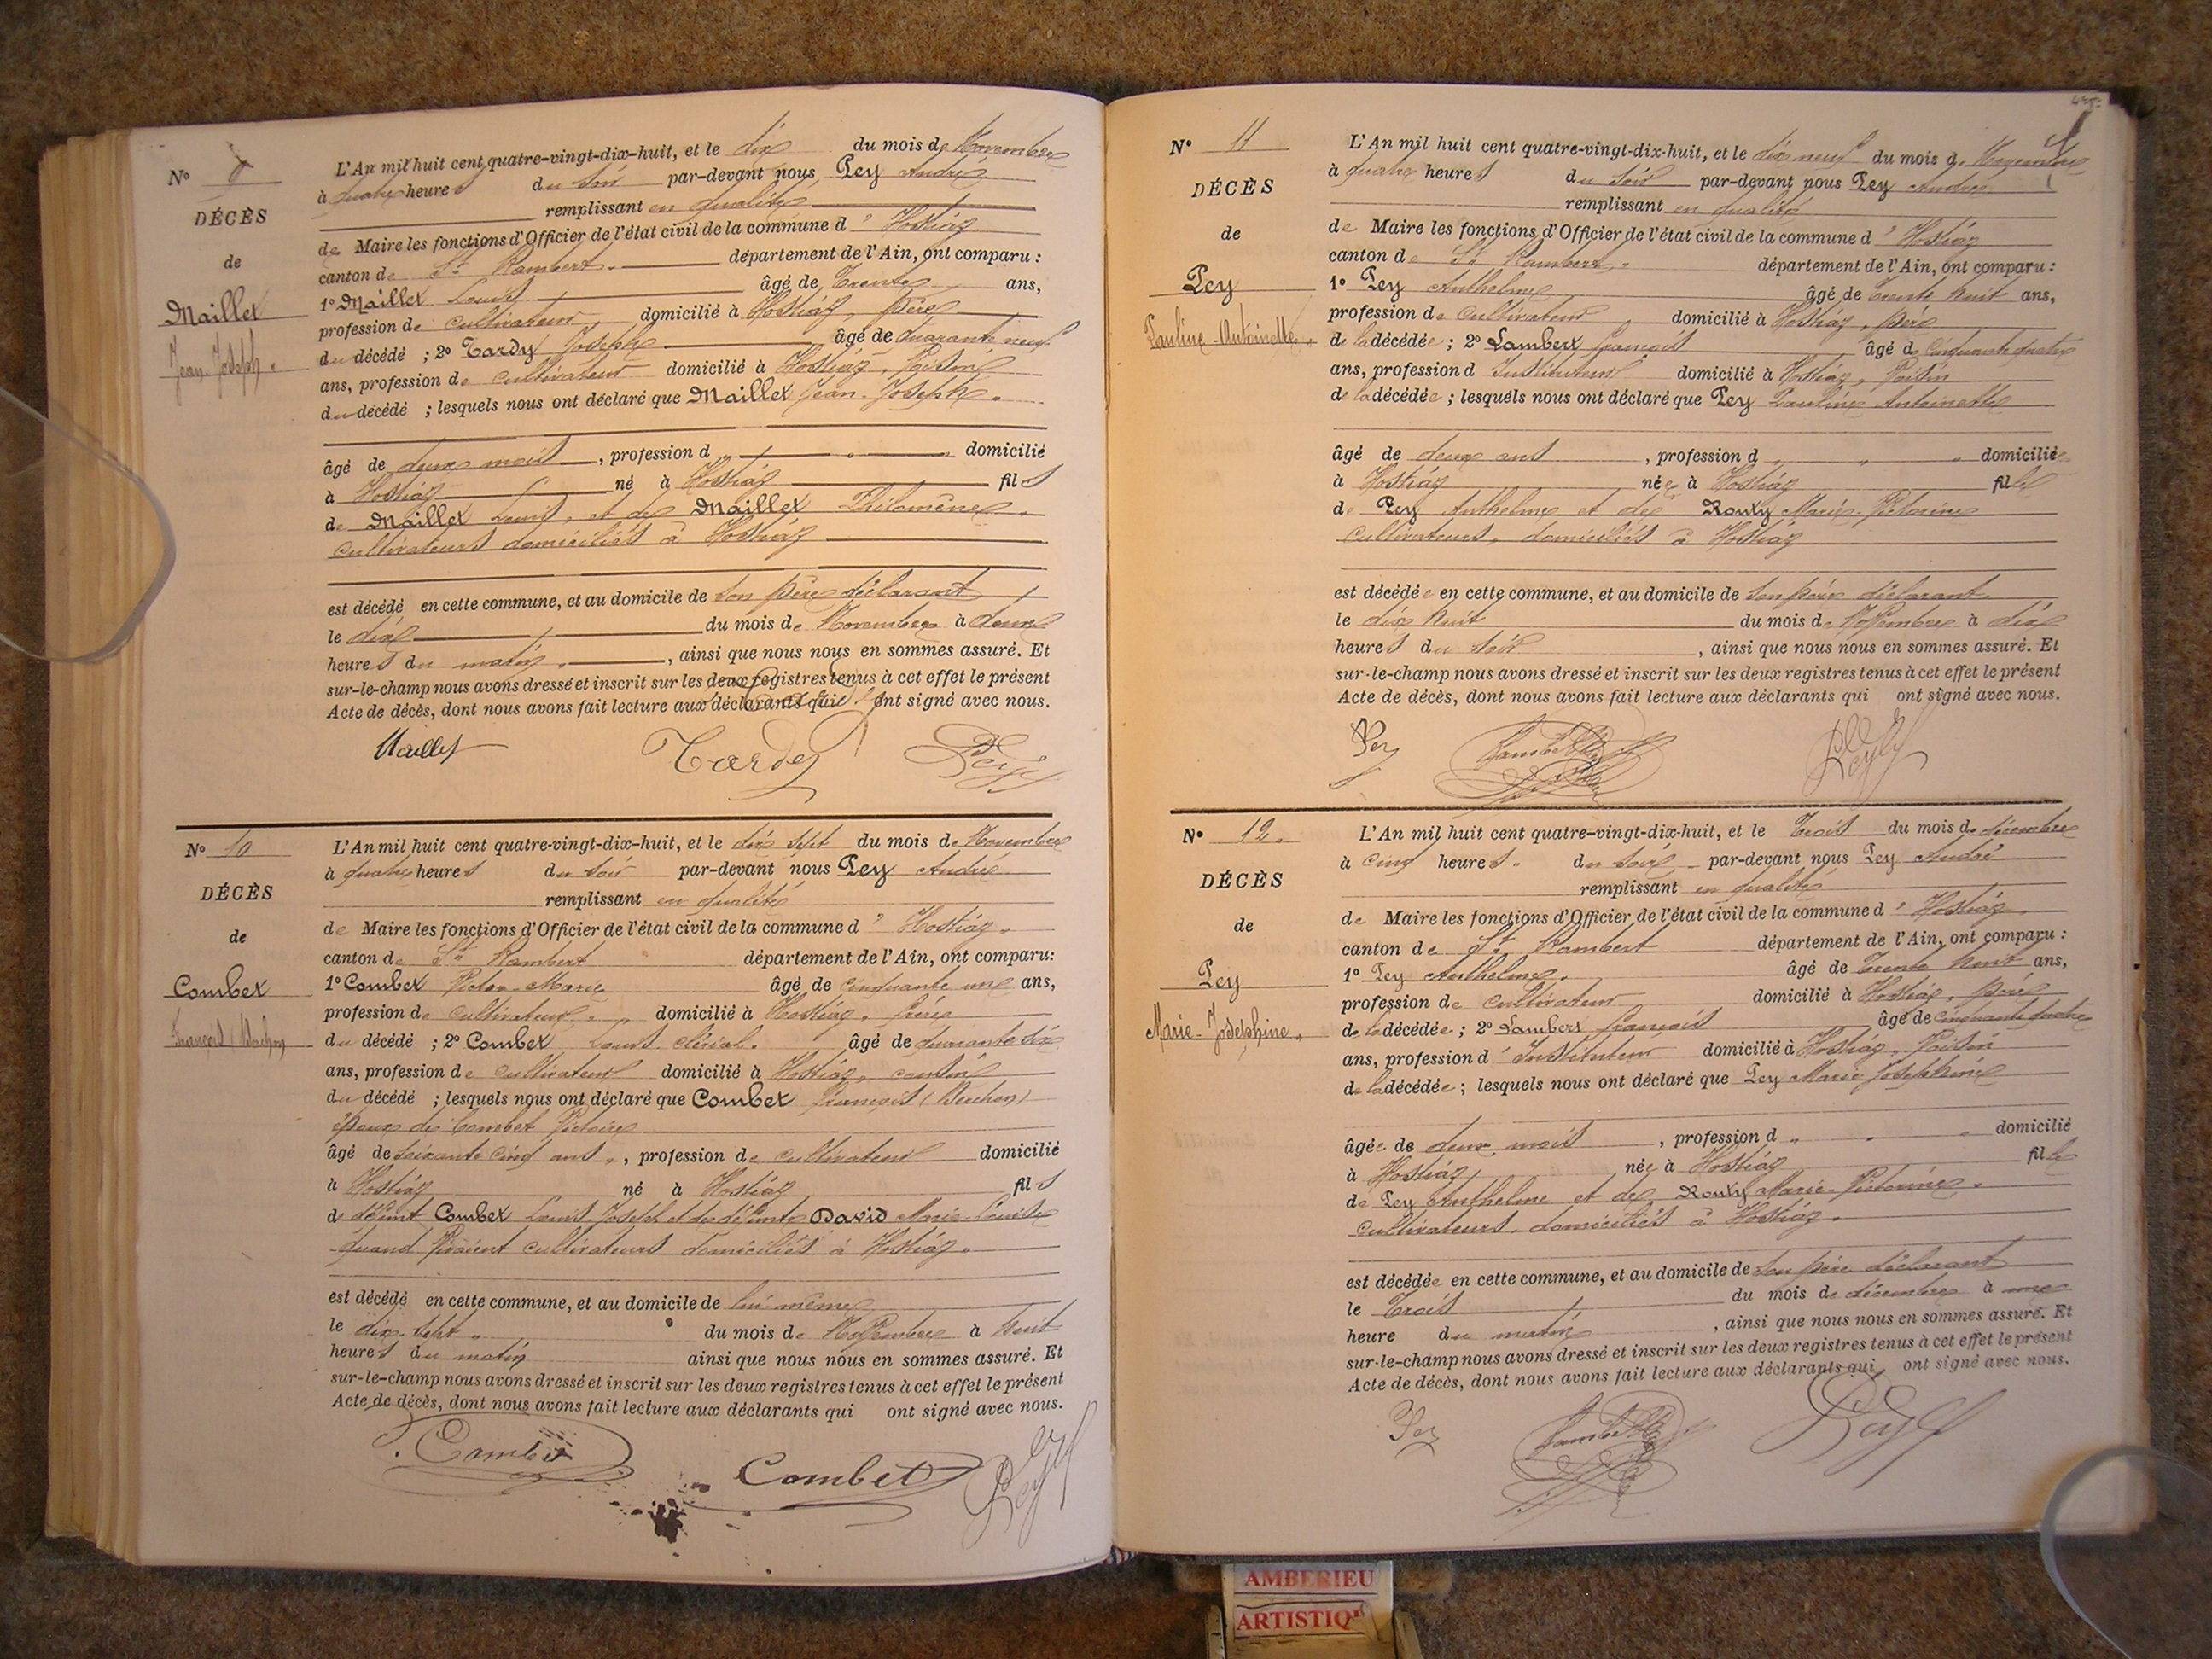 N° 9
DÉCÈS
de
Maillet
Jean-Joseph.
L'An mil huit cent quatre-vingt-dix-huit, et le dix du mois de Novembre
à quatre heures du soir par-devant nous Pey André
remplissant en qualité
de Maire les fonctions d'Officier de l'état civil de la commune d' Hostiaz
canton de St Rambert. département de l'Ain, ont comparu :
1° Maillet Louis âgé de Trente ans,
profession de cultivateur domicilié à Hostiaz, père
du décédé ; 2° Tardy Joseph âgé de quarante neuf
ans, profession de cultivateur domicilié à Hostiaz, Voisin
du décédé ; lesquels nous ont déclaré que Maillet Jean-Joseph.
âgé de deux mois, profession d domicilié
à Hostiaz né à Hostiaz fils
de Maillet Louis, et de Maillet Philomène,
cultivateurs domiciliés à Hostiaz
est décédé en cette commune, et au domicile de son père déclarant
le dix du mois de Novembre à deux
heures du matin, ainsi que nous nous en sommes assuré. Et
sur-le-champ nous avons dressé et inscrit sur les deux registres tenus à cet effet le présent
Acte de décès, dont nous avons fait lecture aux déclarants qui ont signé avec nous.
Maillet Tardy Pey
N° 10
DÉCÈS
de
Combet
François (Berchon)
L'An mil huit cent quatre-vingt-dix-huit, et le dix sept du mois de Novembre
à quatre heures du soir par-devant nous Pey André
remplissant en qualité
de Maire les fonctions d'Officier de l'état civil de la commune d' Hostiaz.
canton de St Rambert département de l'Ain, ont comparu:
1° Combet Victor-Marie âgé de cinquante une ans,
profession de cultivateur, domicilié à Hostiaz, frère
du décédé ; 2° Combet Louis âgé de quarante six
ans, profession de cultivateur domicilié à Hostiaz, cousin
du décédé ; lesquels nous ont déclaré que Combet François (Berchon)
époux de Combet Victoire
âgé de soixante cinq ans, profession de cultivateur domicilié
à Hostiaz né à Hostiaz fils
de défunt Combet Louis Joseph et de défunte David Marie-Louise
quand vivaient cultivateurs domiciliés à Hostiaz.
est décédé en cette commune, et au domicile de lui-même
le dix-sept du mois de Novembre à huit
heures du matin ainsi que nous nous en sommes assuré. Et
sur-le-champ nous avons dressé et inscrit sur les deux registres tenus à cet effet le présent
Acte de décès, dont nous avons fait lecture aux déclarants qui ont signé avec nous.
Combet Combet Pey
N° 11
DÉCÈS
de
Pey
Pauline-Antoinette.
L'An mil huit cent quatre-vingt-dix-huit, et le dix neuf du mois de Novembre
à quatre heures du soir par-devant nous Pey André
remplissant en qualité
de Maire les fonctions d'Officier de l'état civil de la commune d' Hostiaz
canton de St Rambert. département de l'Ain, ont comparu :
1° Pey Anthelme âgé de trente huit ans,
profession de cultivateur domicilié à Hostiaz, père
de la décédée ; 2° Lambert François âgé de cinquante quatre
ans, profession d'Instituteur domicilié à Hostiaz, Voisin
de la décédée ; lesquels nous ont déclaré que Pey Pauline Antoinette
âgé de deux ans, profession d domiciliée
à Hostiaz née à Hostiaz fille
de Pey Anthelme et de Routy Marie-Victorine
cultivateurs, domiciliés à Hostiaz
est décédée en cette commune, et au domicile de son père déclarant.
le dix huit du mois de Novembre à dix
heures du soir, ainsi que nous nous en sommes assuré. Et
sur-le-champ nous avons dressé et inscrit sur les deux registres tenus à cet effet le présent
Acte de décès, dont nous avons fait lecture aux déclarants qui ont signé avec nous.
Pey Lambert Pey
N° 12.
DÉCÈS
de
Pey
Marie-Joséphine.
L'An mil huit cent quatre-vingt-dix-huit, et le Trois du mois de décembre
à cinq heures du soir par-devant nous Pey André
remplissant en qualité
de Maire les fonctions d'Officier de l'état civil de la commune d' Hostiaz.
canton de St Rambert département de l'Ain, ont comparu :
1° Pey Anthelme. âgé de Trente huit ans,
profession de cultivateur domicilié à Hostiaz, père
de la décédée ; 2° Lambert François âgé de cinquante quatre
ans, profession d'Instituteur domicilié à Hostiaz, Voisin
de la décédée ; lesquels nous ont déclaré que Pey Marie Joséphine
âgée de deux mois, profession d domicilié
à Hostiaz née à Hostiaz fille
de Pey Anthelme et de Routy Marie-Victorine.
cultivateurs, domiciliés à Hostiaz.
est décédée en cette commune, et au domicile de son père déclarant
le Trois du mois de décembre à une
heure du matin, ainsi que nous nous en sommes assuré. Et
sur-le-champ nous avons dressé et inscrit sur les deux registres tenus à cet effet le présent
Acte de décès, dont nous avons fait lecture aux déclarants qui ont signé avec nous.
Pey Lambert Pey
AMBERIEU
ARTISTIQ